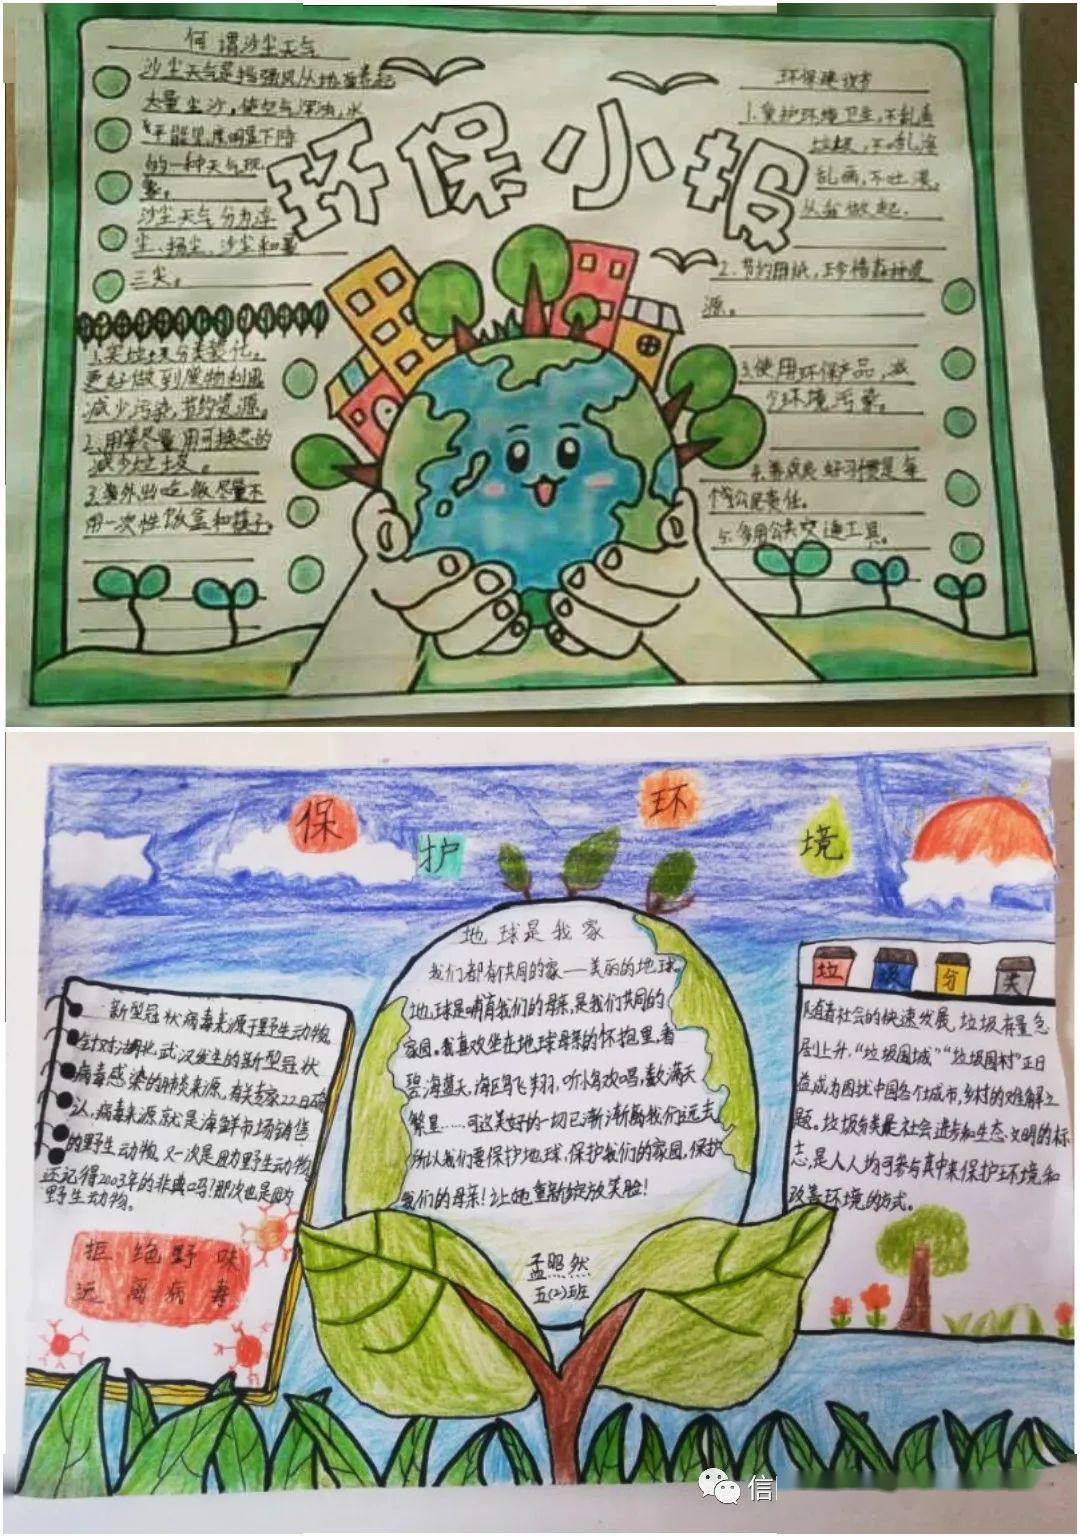 何谓沙尘天气
沙尘天气是指强风从地面卷起
大量尘沙，使空气浑浊，水
平能见度明显下降
的一种天气现
象。
沙尘天气分为浮
尘、扬尘、沙尘和
三尖。
环保小报
环保建议书
1.爱护环境卫生，不乱丢
垃圾，不乱涂
乱画，不吐痰。
从我做起.
2.节约用纸，珍惜森林资
源。
3.使用环保产品，减
少环境污染。
4.养成良好习惯是每
个公民责任。
5.多用公共交通工具。
更好做到废物利用
减少污染，节约资源。
2.用笔尽量用可换芯的
减少垃圾。
3.外出吃饭尽量不
用一次性饭盒和筷子。
保护环境
地球是我家
我们都有共同的家——美丽的地球。
地球是哺育我们的母亲,是我们共同的
家园。我喜欢坐在地球母亲的怀抱里,看
碧海蓝天,海鸥飞翔,听小鸟欢唱,数满天
繁星……可这美好的一切已渐渐离我们远去
所以我们要保护地球,保护我们的家园,保护
我们的母亲!让她重新绽放笑脸!
孟昭然
五(2)班
新型冠状病毒来源于野生动物。
针对湖北武汉发生的新型冠状
病毒感染的肺炎来源,有关专家22日确
认,病毒来源就是海鲜市场销售
的野生动物。又一次是因为野生动物。
还记得2003年的非典吗?那次也是因为
野生动物。
拒绝野味
远离病毒
垃圾分类
随着社会的快速发展,垃圾存量急
剧上升,“垃圾围城”“垃圾围村”正日
益成为困扰中国各个城市,乡村的难解之
题。垃圾分类是社会进步和生态文明的标
志,是人人均可参与其中来保护环境和
改善环境的方式。
信